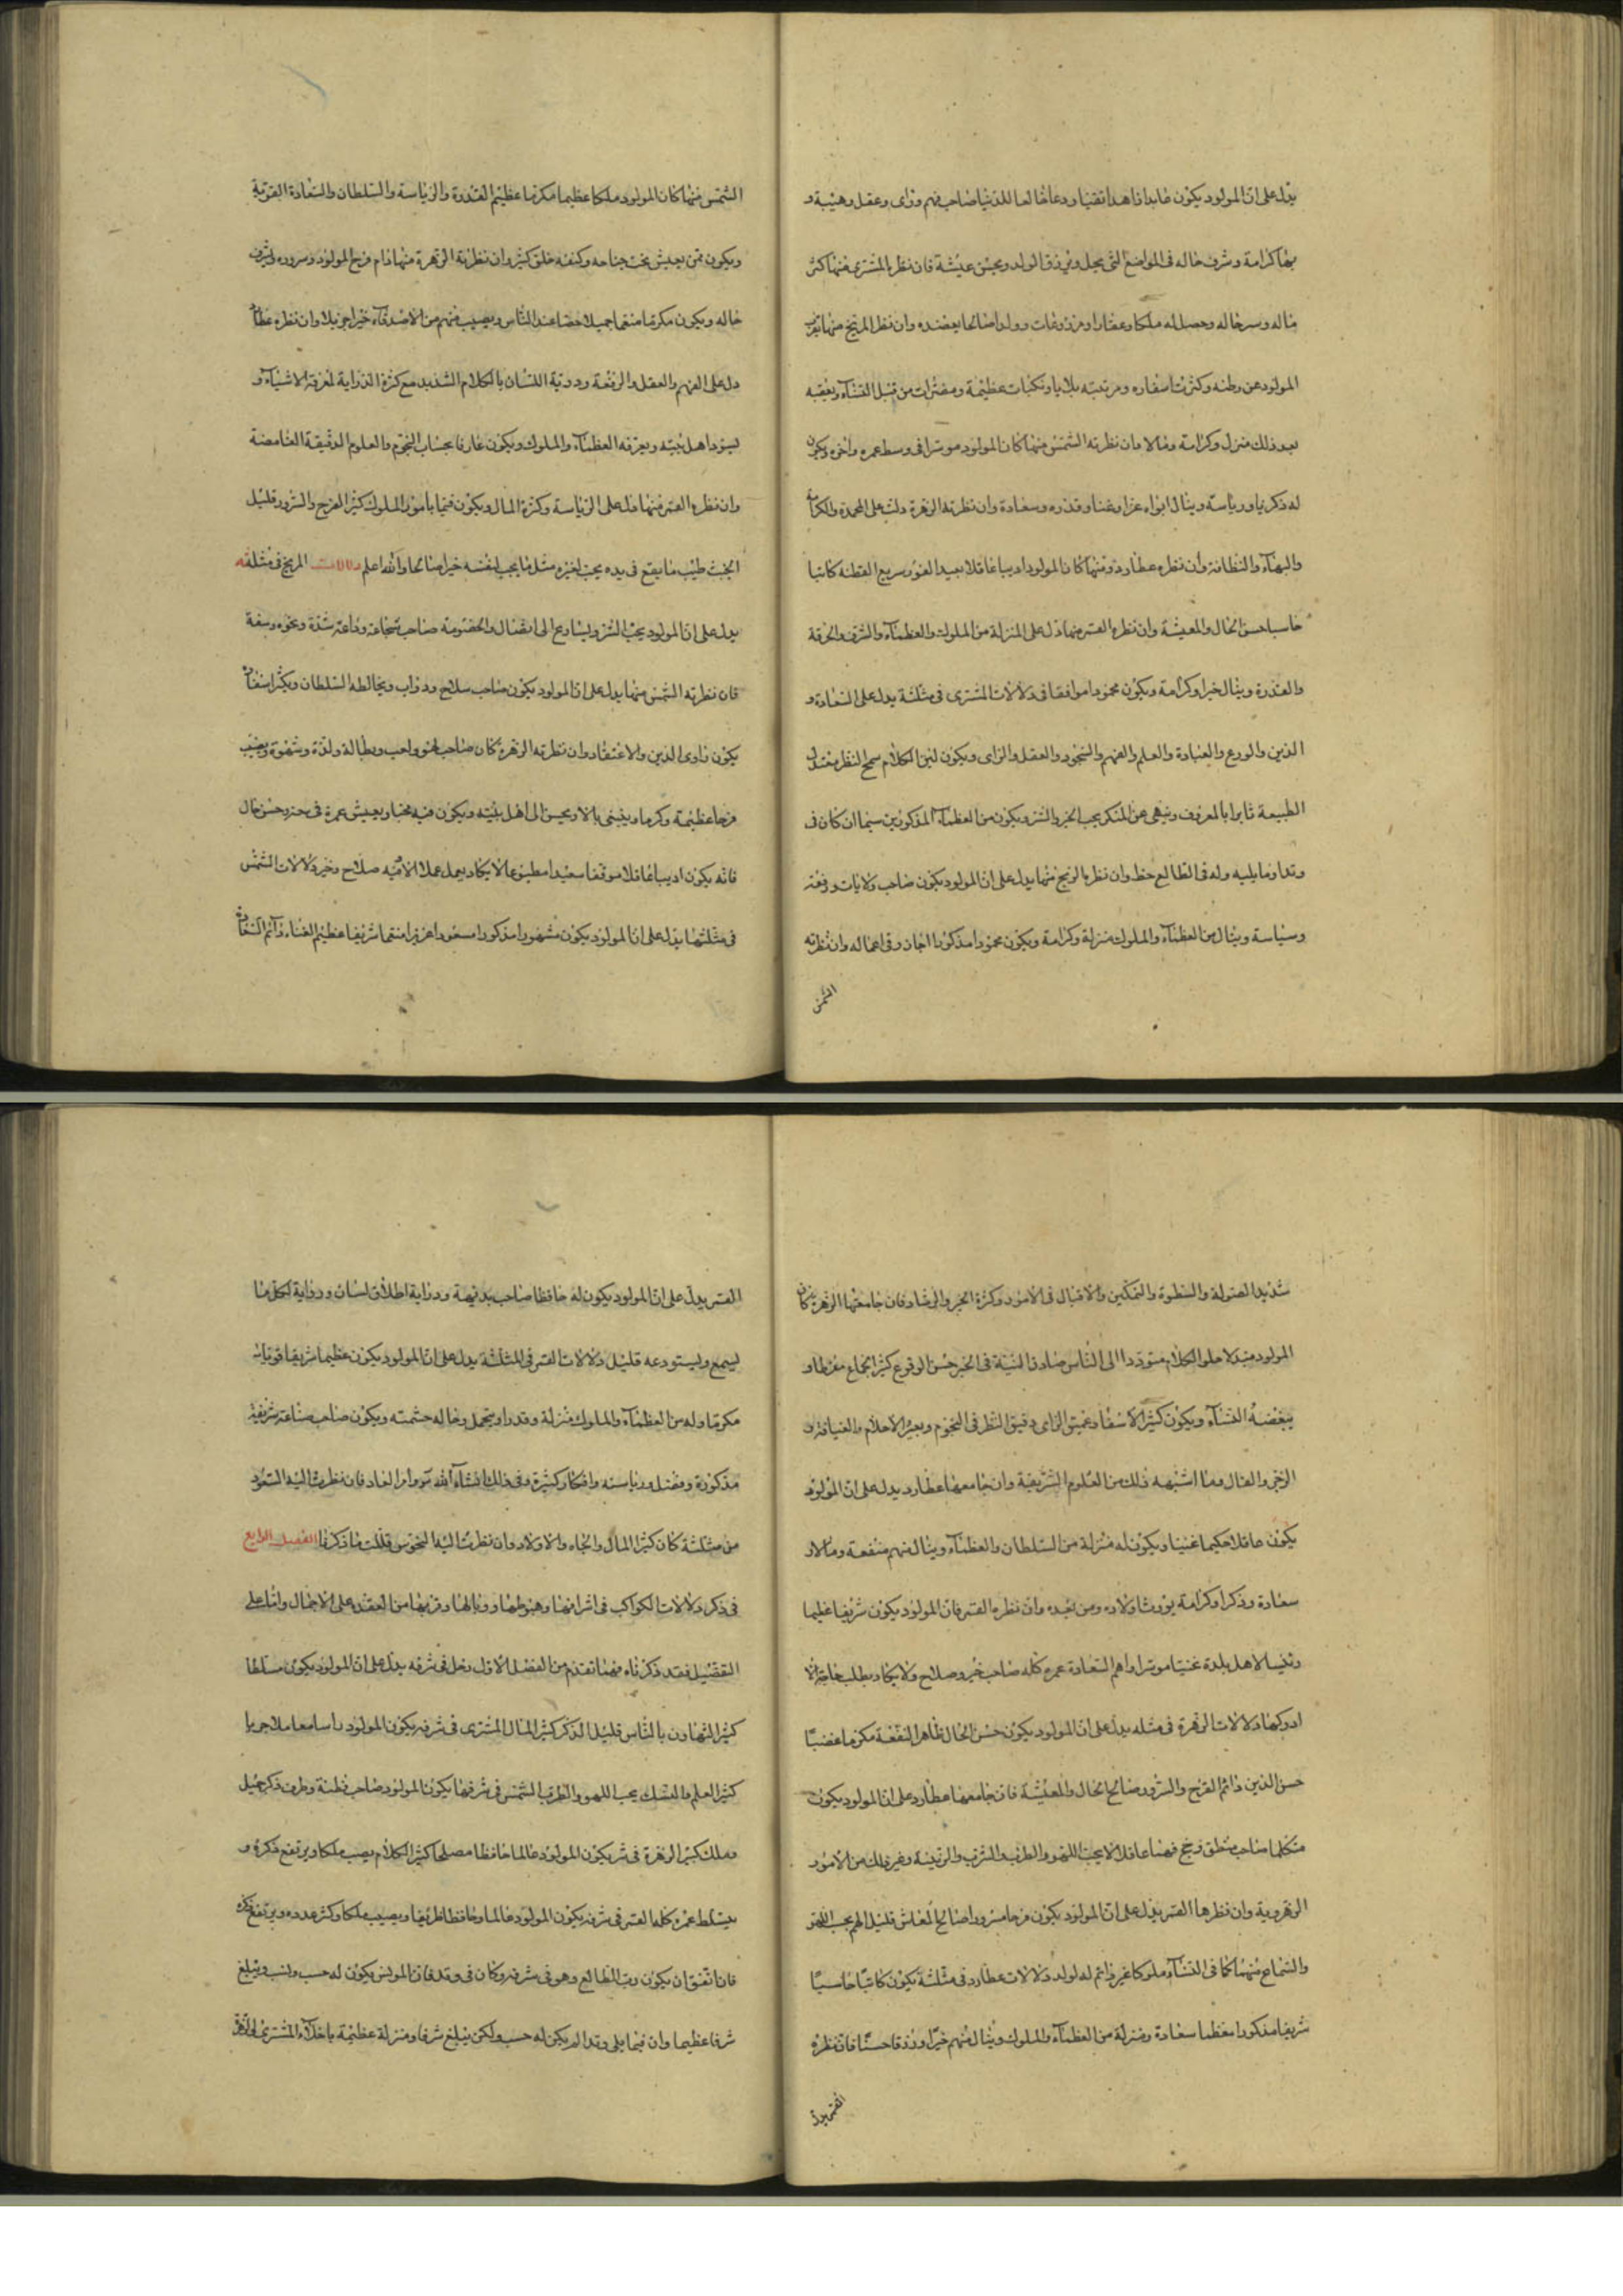 يدل على ان المولود يكون عابدا زاهدا تقيا ورعا خالعا للدنيا صاحب فهم وراى وعقل وهيبة و
بها كرامة وشرف حاله فى المواضع التى يحل ويرزق الولد ويحسن عيشة فان نظره المشترى منها كثر
ماله وسر حاله وحصل له ملكا وعقارا ومزروعات وولدا صالحا يعضده وان نظر المريخ منها تغرب
المولود عن وطنه وكثرت اسفاره ومرتبته بلايا ونكبات عظيمة ومضرات من قبل النساء ويعقبه
بعد ذلك منزل وكرامة ومالا وان نظرته الشمس منها كان المولود موسرا فى وسط عمره واخره ويكون
له ذكر نيا ورياسة وينال ابواه عزا وغنا وقدره وسعادة وان نظرته الزهرة دلت على المحمدة والكرامة
والبهاء والنظافة وان نظره عطارد ومنها كان المولود اديبا عاقلا بعيد الغور سريع الفطنة كاتبا
حاسبا حسن الحال والمعيشة وان نظره القمر منها دل على المنزلة من الملوك والعظماء والشرف والحرفة
والقدرة وينال خيرا وكرامة ويكون محمودا موافقا فى دلالات المشترى فى مثلثة يدل على السعادة و
الدين والورع والعبادة والعلم والفهم والسجود والعقل والراى ويكون لين الكلام سمح النظر معتدل
الطبيعة ثابرا بالمعروف وينهى عن المنكر يحب الخير والستر ويكون من العظماء المذكورين سيما ان كان فى
وتد او ما يليه وله فى الطالع حظ وان نظره المريخ منها يدل على ان المولود يكون صاحب ولايات ورفعة
وسياسة وينال من العظماء والملوك منزلة وكرامة ويكون محمودا مذكورا وفى اعماله وان نظرته
الشمس
الشمس منها كان المولود ملكا عظيما مكرما عظيم القدرة والرياسة والسلطان والسعادة القوية
ويكون ممن يعيش تحت جناحه وكنفه خلق كثير وان نظرته الزهرة منها دام فرح المولود وسروره وشرف
حاله ويكون مكرما منعما جميلا حضا عند الناس ويصيب منهم من الاصدقاء خيرا جزيلا وان نظره عطارد
دل على الفهم والعقل والرفعة ودربة اللسان بالكلام الشديد مع كثرة الدراية لمعرفة الاشياء و
يسود اهل بيته ويعرفه العظماء والملوك ويكون عارفا بحساب النجوم والعلوم الدقيقة الغامضة
وان نظره القمر منها دل على الرياسة وكثرة المال ويكون قيما بامور الملوك كثير الفرح والسرور قليل
الخبث طيب ما يقع فى يده يحب لغيره مثل ما يحب لنفسه خيرا صالحا والله اعلم دلالات المريخ فى مثلثه
يدل على ان المولود يحب الشر ويسارع الى القتال والخصومة صاحب شجاعة وداعر شدة ونخوه وسفه
فان نظرته الشمس منها يدل على ان المولود يكون صاحب سلاح ودواب ويخالطه السلطان ويكثر اسفاره
يكون زاوى الدين والاعتقاد وان نظرته الزهرة كان صاحب لهو ولعب وبطالة ولذة وشهوة ويصيب
فرحا عظيمة وكرما ويفيض بالا ويحسن الى اهل بيته ويكون فيه محبا ويعيش عمره فى خير وحسن حال
فانه يكون اديبا عاقلا موفقا سعيدا مطبوعا لا يكاد يعمل عملا الا فيه صلاح وخير دلالات الشمس
فى مثلثها يدل على ان المولود يكون مشهورا مذكورا مسعودا عزيزا منعما شريفا عظيم الغناء دائم السعادة
شديد الصولة والسطوة والتمكين والاقبال فى الامور وكثرة الخير والرشاد فان جامعتها الزهرة كان
المولود مبتدلا حلو الكلام متوددا الى الناس صادق النية فى الخير حسن الوقوع كثير الجماع مفرطا و
يبغضه النساء ويكون كثير الاسفار عميق الراى دقيق النظر فى النجوم وتعبير الاحلام والعيافة و
الزجر والفال وما اشبهه ذلك من العلوم الشريفة وان جامعها عطارد يدل على ان المولود
يكون عاقلا حكيما غنيا ويكون له منزلة من السلطان والعظماء وينال منهم منفعة ومالا و
سعادة وذكرا وكرامة يورث اولاده ومن بعده وان نظره القمر فان المولود يكون شريفا عظيما
ورئيسا لاهل بلدة غنيا موسرا واهم السعادة عمره كله صاحب خير وصلاح ولا يكاد يطلب حاجة الا
ادركها دلالات الزهرة فى مثله يدل على ان المولود يكون حسن الحال ظاهر النفعة مكرما غضبا
حسن الدين دائم الفرح والسرور صالح الحال والمعيشة فان جامعها عطارد على ان المولود يكون
متكلما صاحب منطق وحج فهما عاقلا لا يحب اللهو والطرب والشرب والزينة وغير ذلك من الامور
الزهروية وان نظرها القمر يدل على ان المولود يكون فرحا مسرورا صالح المعاش قليل الهم يحب اللهو
والسماع منهمكا فى النساء ملوكا غير دائم له لولد دلالات عطارد فى مثلثة يكون كاتبا حاسبا
شريفا مذكورا معظما سعادة ومنزلة من العظماء والملوك وينال منهم خيرا ورزقا حسنا فان نظره
القمر يدل
القمر يدل على ان المولود يكون له حافظا صاحب بديهة ودراية اطلاق لسان ورواية لكل ما
يسمع ويستودعه قليل دلالات القمر فى المثلثة يدل على ان المولود يكون عظيما شريفا قويا
مكرما وله من العظماء والملوك منزلة وقدرا ويتحمل وحاله حشمته ويكون صاحب صناعة شريفة
مذكورة وفضل ورياسته وافكار كثيرة وفى ذلك انشاء الله فان نظرت اليه السعود
من مثلثة كان كثير المال والجاه والاولاد وان نظرت اليه النحوس قللت ما ذكرنا الفصل الرابع
فى ذكر دلالات الكواكب فى اشرافها وهبوطها ووبالها وقربها من العقد على الاجمال واما على
التفصيل فقد ذكرناه فيما تقدم من الفصل الاول زحل فى شرفه يدل على ان المولود يكون مسلطا
كثير التهاون بالناس قليل الذكر كثير المال المشترى فى شرفه يكون المولود
كثير العلم والنسك يحب اللهو والطرب الشمس فى شرفها يكون المولود صاحب فطنة وظرف ذكر جميل
وملك كبير الزهرة فى شر يكون المولود عالما حافظا مصلحا كثير الكلام يصب ملكا ويرتفع ذكره و
يتسلط عمره كله القمر فى شرفه يكون المولود عالما وحافظا ظريفا ويصيب ملكا وكثر عدده ويرتفع ذكره
فان اتفق ان يكون رب الطالع وهو فى شرفه وكان فى وتد فان المولد يكون له حسب ونسب ويبلغ
شرفا عظيما وان فيما يلى وتد الم يكون له حسب ولكن يبلغ شرفا ومنزلة عظيمة